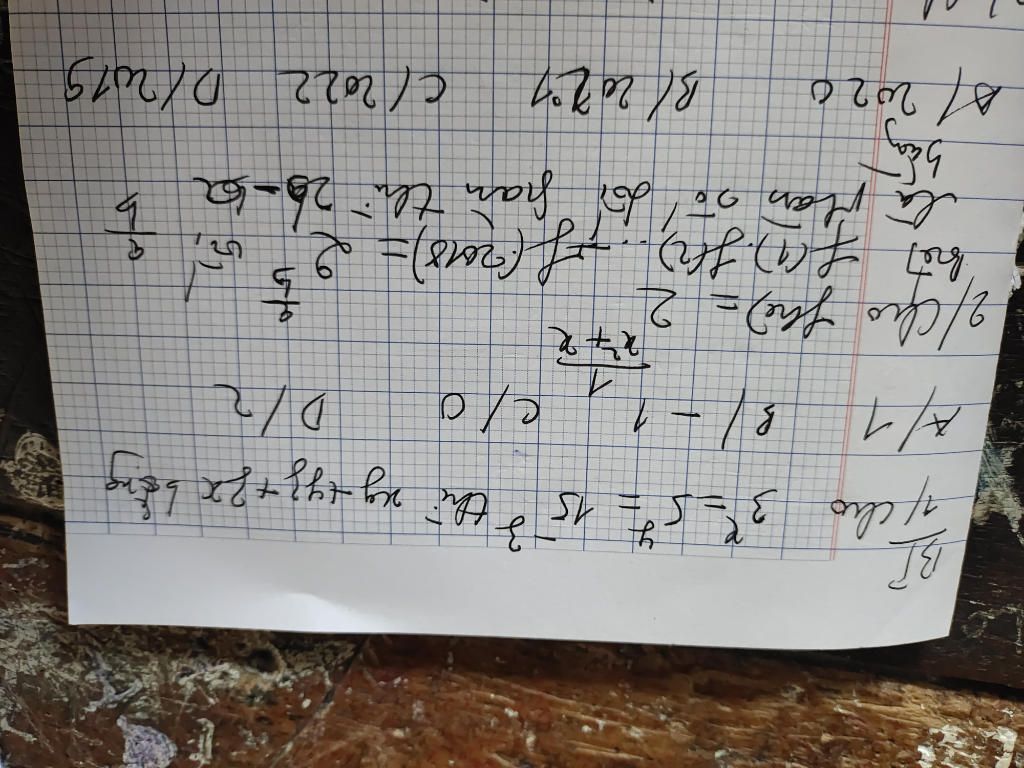 BT
1/ Cho 3^x = 5^y = 15^-z thì xy + yz + zx bằng
A/ 1 B/ - 1 C/ 0 D/ 2
2/ Cho f(x) = 2^(1/(x²+x))
biết f(1).f(2)...f(2018) = 2^(a/b) với a/b
là phân số tối giản thì 2b - a
bằng
A/ 2020 B/ 2021 C/ 2022 D/ 2019